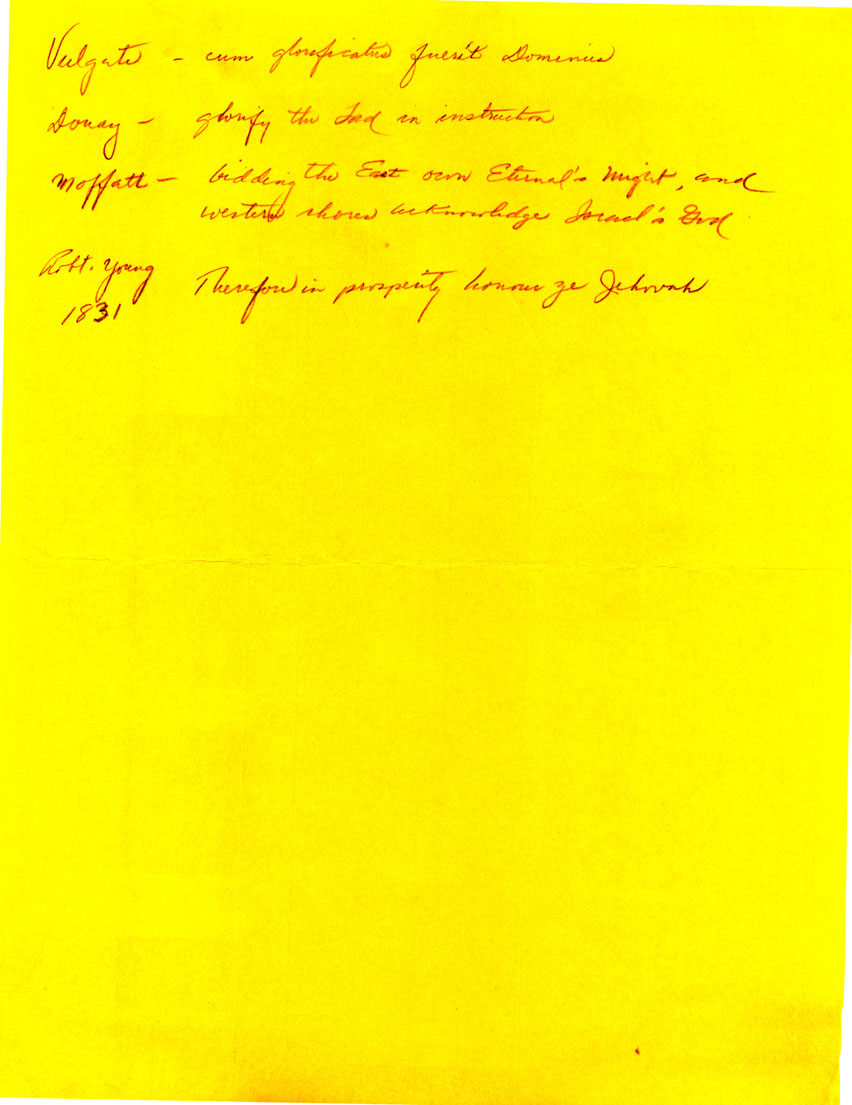 Vulgate - cum glorificatus fuerit Dominus
Douay - glorify the Lord in instruction
Moffatt - bidding the East own Eternal's might, and
western shores acknowledge Israel's God
Robt. Young
1831 Therefore in prosperity honour ye Jehovah